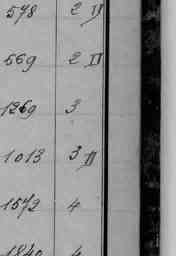 578 2 II
569 2 II
1269 3
1013 3 II
1572 4
1840 4